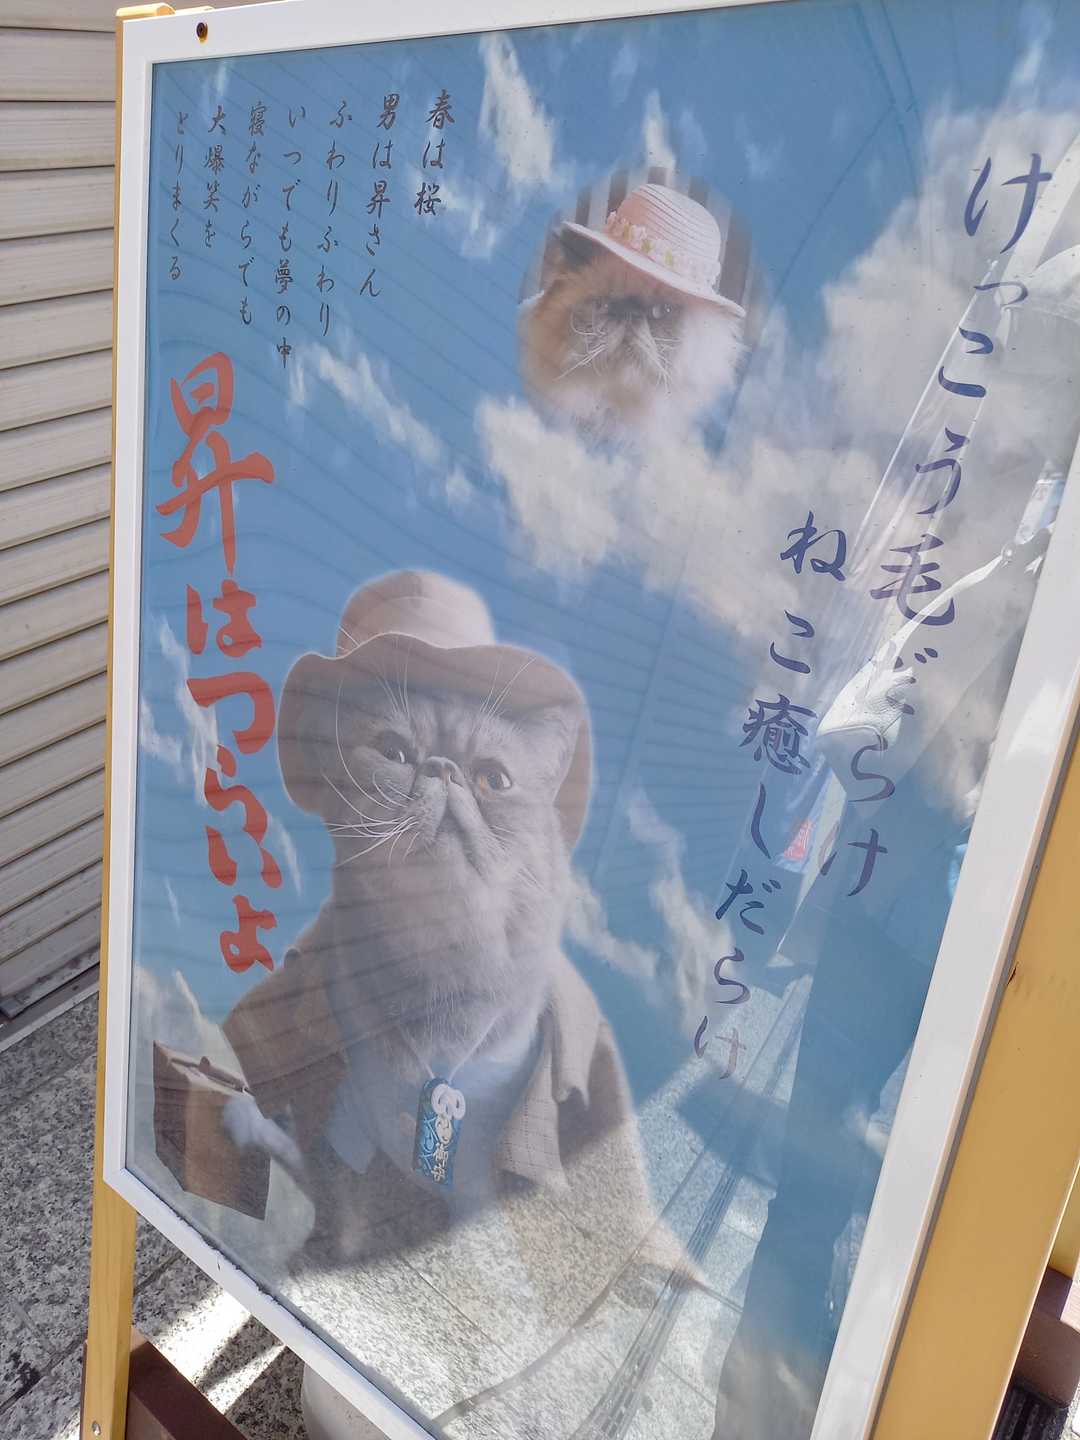 けっこう毛だらけ
ねこ癒しだらけ
春は桜
男は昇さん
ふわりふわり
いつでも夢の中
寝ながらでも
大爆笑を
とりまくる
昇はつらいよ
御守